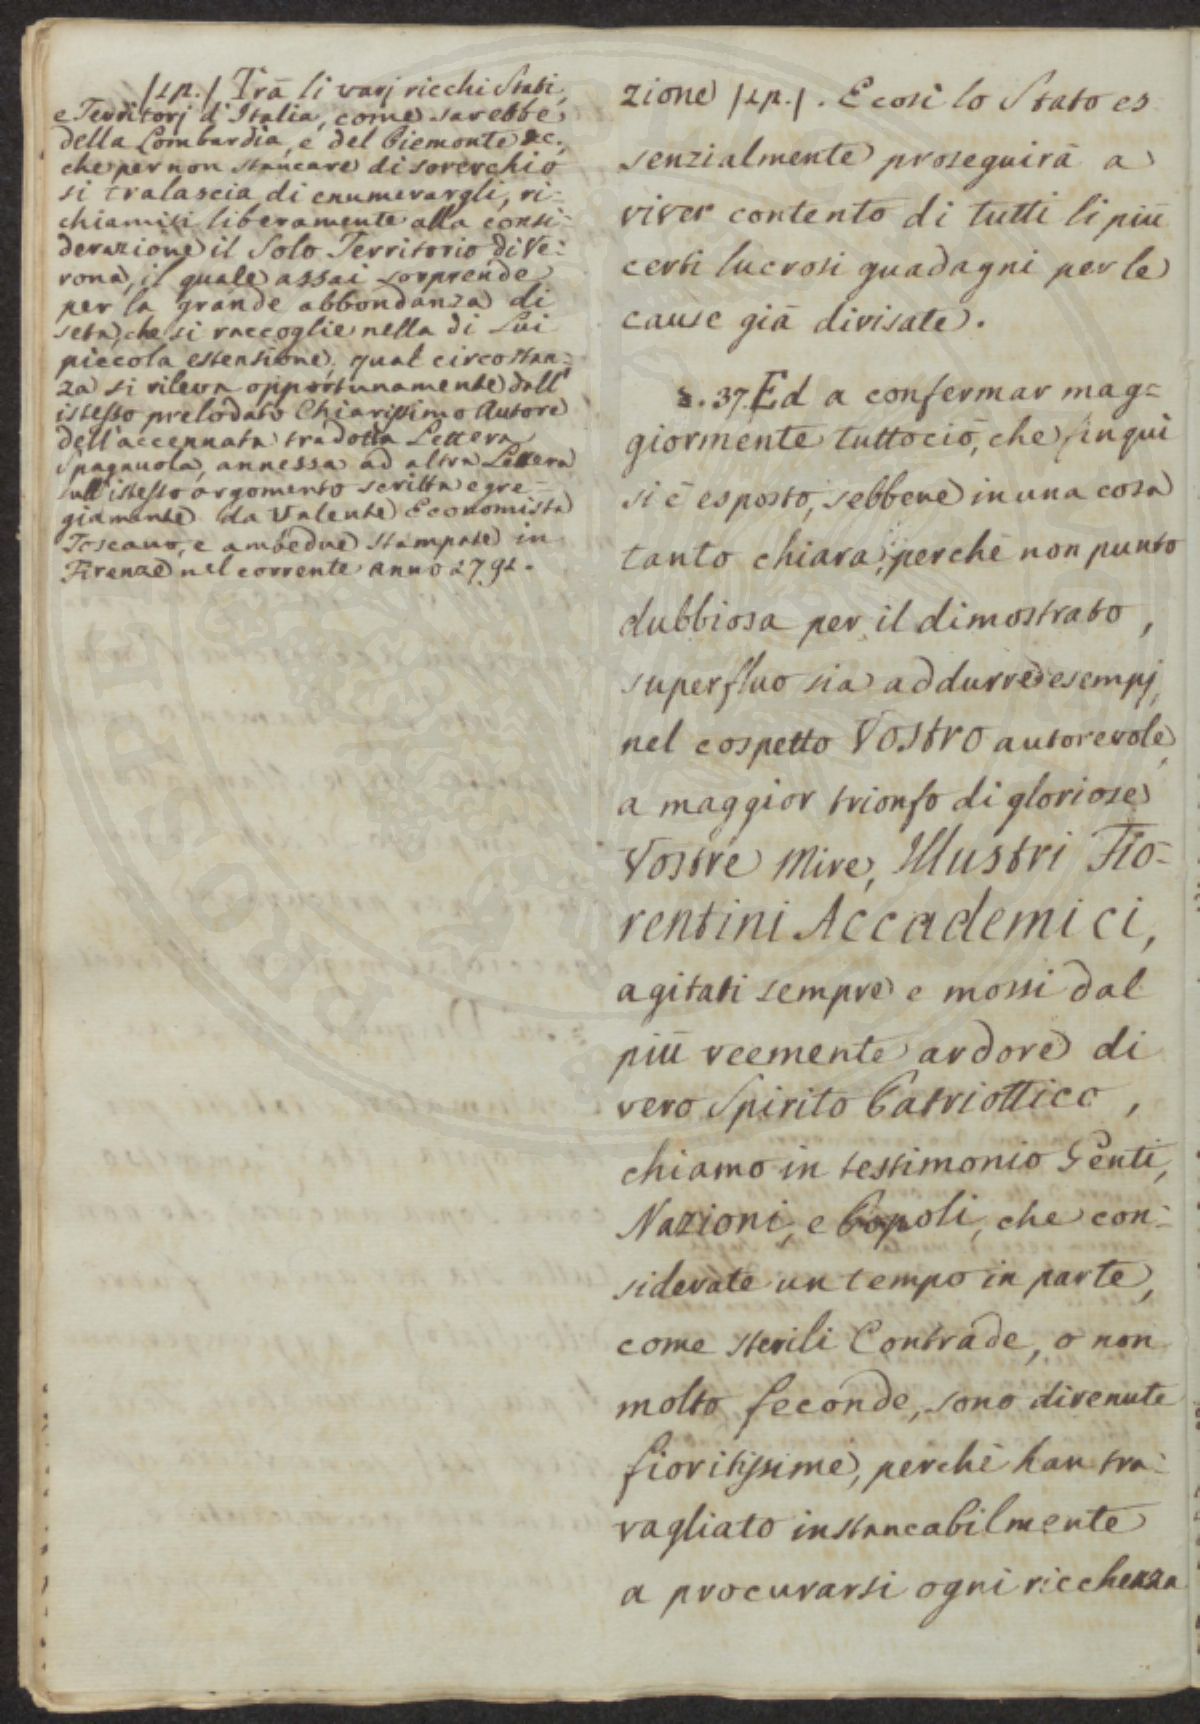 /1p./ Trà li varj ricchi Stati,
e Territorj d'Italia, come sarebbe
della Lombardia, e del Piemonte &c.,
che per non stancare di soverchio
si tralascia di enumerargli, ri-
chiamisi liberamente alla consi-
derazione il Solo Territorio di Ve-
rona, il quale assai sorprende
per la grande abbondanza di
seta, che si raccoglie nella di Lui
piccola estensione, qual circostan-
za si rileva opportunamente dall'
istesso prelodato Chiarissimo Autore
dell'accennata tradotta Lettera
Spagnuola, annessa ad altra Lettera
sull'istesso argomento scritta egre-
giamente da Valente Economista
Toscano, e ambedue stampate in
Firenze nel corrente anno 1791.
zione /1p./. E così lo Stato es
senzialmente proseguirà a
viver contento di tutti li più
certi lucrosi guadagni per le
cause già divisate.
§. 37. Ed a confermar mag-
giormente tuttociò, che fin qui
si è esposto, sebbene in una cosa
tanto chiara, perchè non punto
dubbiosa per il dimostrato,
superfluo sia addurre esempj,
nel cospetto Vostro autorevole,
a maggior trionfo di gloriose
Vostre Mire, Illustri Fio-
rentini Accademici,
agitati sempre e mossi dal
più veemente ardore di
vero Spirito Patriottico,
chiamo in testimonio Genti,
Nazioni, e Popoli, che con-
siderate un tempo in parte,
come sterili Contrade, o non
molto feconde, sono divenute
fioritissime, perchè han tra-
vagliato instancabilmente
a procurarsi ogni ricchezza